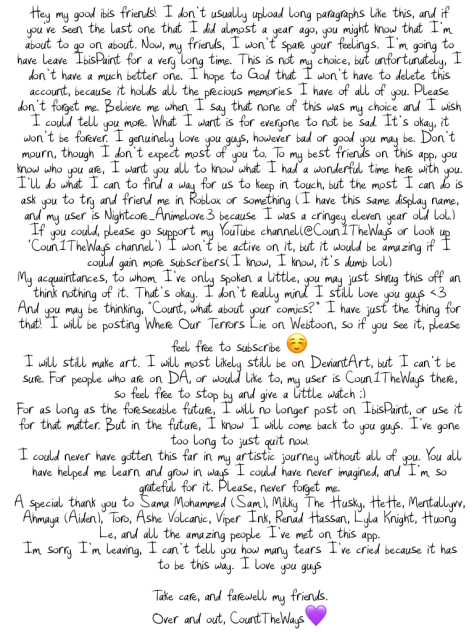 Hey my good ibis friends! I don't usually upload long paragraphs like this, and if
you've seen the last one that I did almost a year ago, you might know that I'm
about to go on about. Now, my friends, I won't spare your feelings. I'm going to
have leave IbisPaint for a very long time. This is not my choice, but unfortunately, I
don't have a much better one. I hope to God that I won't have to delete this
account, because it holds all the precious memories I have of all of you. Please
don't forget me. Believe me when I say that none of this was my choice and I wish
I could tell you more. What I want is for everyone to not be sad. It's okay, it
won't be forever. I genuinely love you guys, however bad or good you may be. Don't
mourn, though I don't expect most of you to. To my best friends on this app, you
know who you are, I want you all to know what I had a wonderful time here with you.
I'll do what I can to find a way for us to keep in touch, but the most I can do is
ask you to try and friend me in Roblox or something (I have this same display name,
and my user is Nightcore_Animelove3 because I was a cringey eleven year old lol)
If you could, please go support my YouTube channel(@Coun1TheWays or look up
'Coun1TheWays channel') I won't be active on it, but it would be amazing if I
could gain more subscribers(I know, I know, it's dumb lol)
My acquaintances, to whom I've only spoken a little, you may just shrug this off an
think nothing of it. That's okay. I don't really mind. I still love you guys <3
And you may be thinking, "Count, what about your comics?" I have just the thing for
that! I will be posting Where Our Terrors Lie on Webtoon, so if you see it, please
feel free to subscribe ☺️
I will still make art. I will most likely still be on DeviantArt, but I can't be
sure. For people who are on DA, or would like to, my user is Coun1TheWays there,
so feel free to stop by and give a little watch :)
For as long as the foreseeable future, I will no longer post on IbisPaint, or use it
for that matter. But in the future, I know I will come back to you guys. I've gone
too long to just quit now.
I could never have gotten this far in my artistic journey without all of you. You all
have helped me learn and grow in ways I could have never imagined, and I'm so
grateful for it. Please, never forget me.
A special thank you to Sama Mohammed (Sam), Milky The Husky, HeHe, Mentallyrv,
Ahmaya (Aiden), Toro, Ashe Volcanic, Viper Ink, Renad Hassan, Lyla Knight, Huong
Le, and all the amazing people I've met on this app.
Im sorry I'm leaving, I can't tell you how many tears I've cried because it has
to be this way. I love you guys
Take care, and farewell my friends.
Over and out, CountTheWays💜